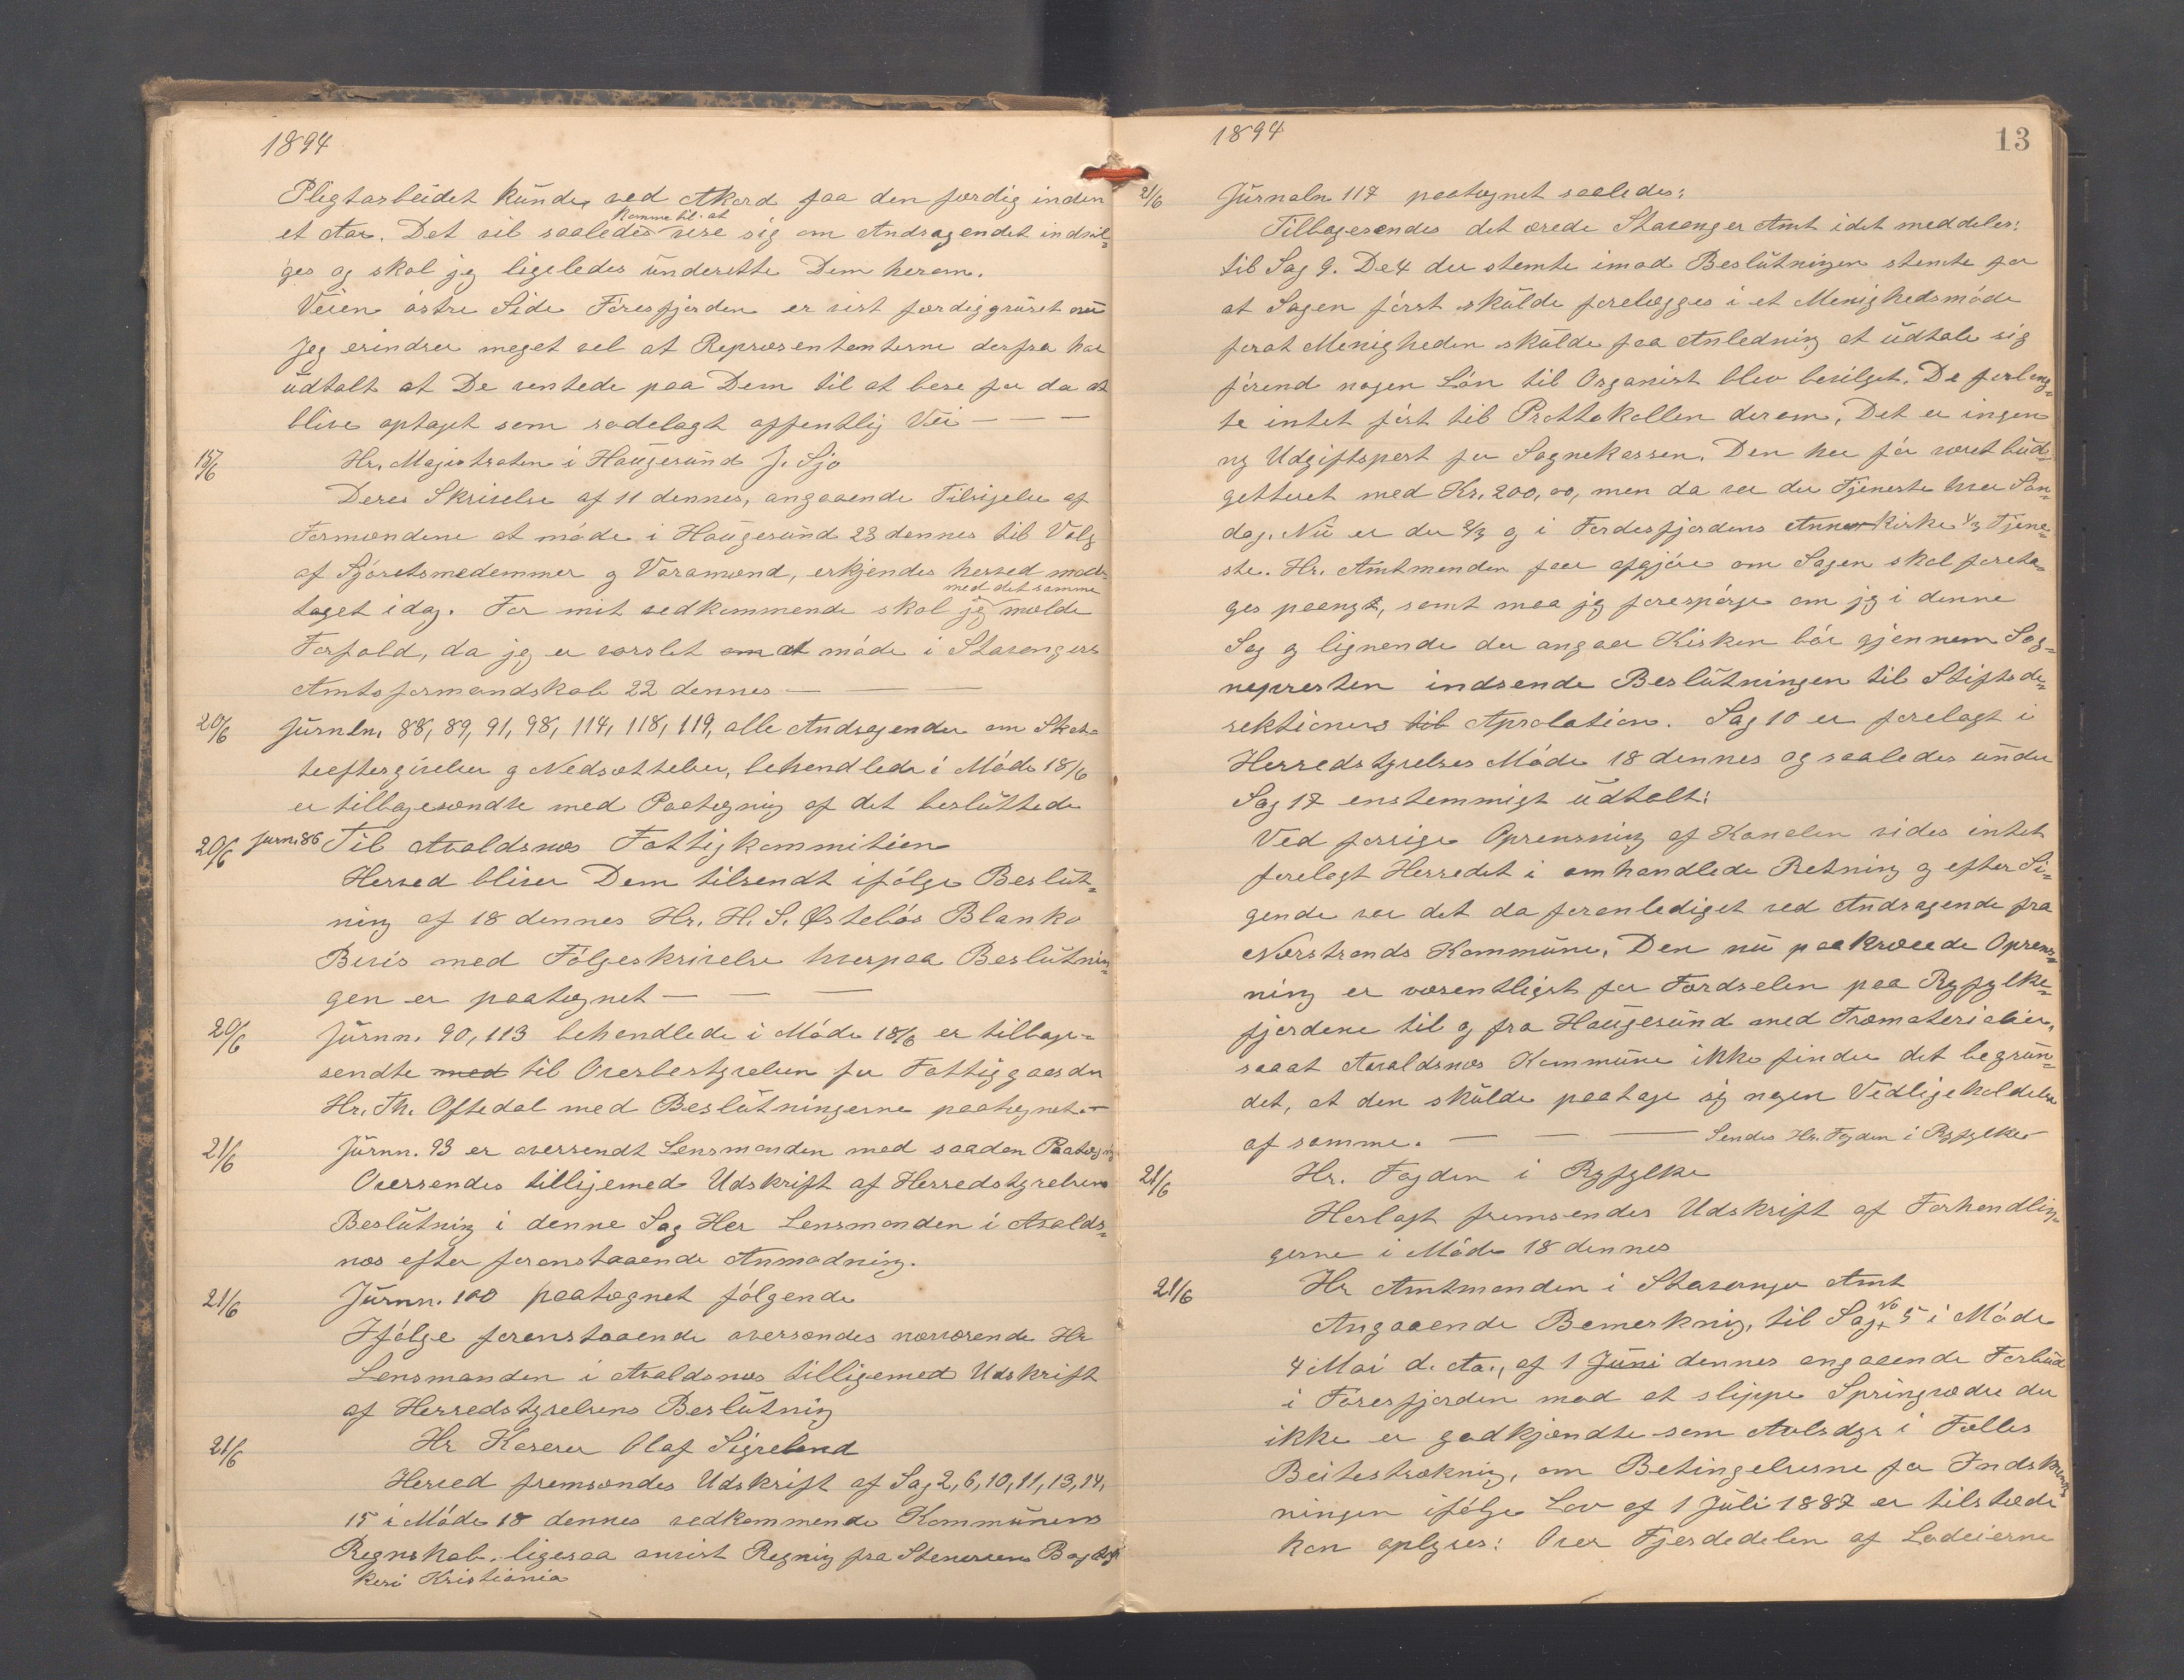 1894
Pligtarbeidet kunde, ved Akord faa den færdig inden
et Aar. Det vil saaledes komme til at vise sig om Andragendet indvil-
ges og skal jeg ligeledes underette Dem herom.
Veien østre Side Føresfjorden er vist færdiggruset nu
Jeg erindrer meget vel at Repræsentanterne derfra har
udtalt at De ventede paa Dem til at bese før da at
blive optaget som rodelagt offentlig Vei — — —
15/6 Hr. Magistraten i Haugesund J. Sjo
Deres Skrivelse af 11 dennes, angaaende Tilsigelse af
Formændene at møde i Haugesund 23 dennes til Valg
af Sjøretsmedemmer og Varamænd, erkjendes herved mod-
taget idag. For mit vedkommende skal jeg med det samme melde
Forfald, da jeg er varslet om at møde i Stavangers
Amtsformandskab 22 dennes — — —
20/6 Jurnln. 88, 89, 91, 98, 114, 118, 119, alle Andragender om Skat-
teeftergivelser og Nedsættelser, behandlede i Møde 18/6
er tilbagesendte med Paategnig af det besluttede
20/6 Jurn. 86 Til Avaldsnes Fattigkommitien
Herved bliver Dem tilsendt ifølge Beslut-
ning af 18 dennes Hr. H. S. Østebøs Blanko
Bevis med Følgeskrivelse hverpaa Beslutnin-
gen er paategnet — — —
20/6 Jurnn. 90, 113 behandlede i Møde 18/6 er tilbage-
sendte med til Overbestyrelsen for Fattiggaarden
Hr. Th. Oftedal med Beslutningerne paategnet. —
21/6 Jurnn. 93 er oversendt Lensmanden med saadan Paategnig
Oversendes tilligemed Udskrift af Herredstyrelsens
Beslutning i denne Sag Her Lensmanden i Avalds-
nes efter foranstaaende Anmodning.
21/6 Jurnn. 100 paategnet følgende
Ifølge foranstaaende oversendes nærværende Hr
Lensmanden i Avaldsnes tilligemed Udskrift
af Herredstyrelsens Beslutning
21/6 Hr Kaserer Olaf Sigveland
Herved fremsendes Udskrift af Sag 2, 6, 10, 11, 13, 14,
15 i Møde 18 dennes vedkommende Kommunens
Regnskab. ligesaa anvist Regnig fra Stenersens Bogtry-
keri Kristiania
1894
13
21/6 Jurnaln 117 paategnet saaledes:
Tilbagesendes det ærede Stavanger Amt idet meddeles:
til Sag 9. De 4 der stemte imod Beslutningen stemte for
at Sagen først skulde forelægges i et Menighedsmøde
forat Menigheden skulde faa Anledning at udtale sig
førend nogen Løn til Organist blev bevilget. De forlang-
te intetført til Prottokollen derom. Det er ingen
ny Udgiftspost for Sognekassen. Den har før været bud-
getteret med Kr. 200,00, men da var der Tjeneste hver Søn-
dag. Nu er der 2/3 og i Førdesfjordens Annex Kirke 1/3 Tjene-
ste. Hr. Amtmanden faar afgjøre om Sagen skal foreta-
ges paanyt, samt maa jeg forespørge om jeg i denne
Sag og lignende der angaar Kirken bør gjennem Sog-
nepresten indsende Beslutningen til Stiftsdi-
rektionens til Aprolation. Sag 10 er forelagt i
Herredstyrelses Møde 18 dennes og saaledes under
Sag 17 enstemmigt udtalt:
Ved forrige Oprensning af Kanalen vides intet
forelagt Herredet i omhandlede Retning og efter Si-
gende var det da foranlediget ved Andragende fra
Nærstrands Kommune. Den nu paakrævede Oprens-
ning er væsentligst for Færdselen paa Ryfylke-
fjordene til og fra Haugesund med Træmaterialier,
saaat Avaldsnes Kommune ikke finder det begrun-
det, at den skulde paatage sig nogen Vedligeholdelse
af samme. — — — Sendes Hr. Fogden i Ryfylke —
21/6 Hr. Fogden i Ryfylke
Herlagt fremsendes Udskrift af Forhandlin-
gerne i Møde 18 dennes
21/6 Hr Amtmanden i Stavanger Amt
Angaaende Bemerknig, til Sag No 5 i Møde
4 Mai d. Aa., af 1 Juni dennes angaaende Forbud
i Føresfjorden mod at slippe Springvædre der
ikke er godkjendte som Avlsdyr i Fælles
Beitestrækning, om Betingelserne for Indskrænk-
ningen ifølge Lov af 1 Juli 1887 er tilstede
kan oplyses: Over Fjerdedelen af Lodeierne